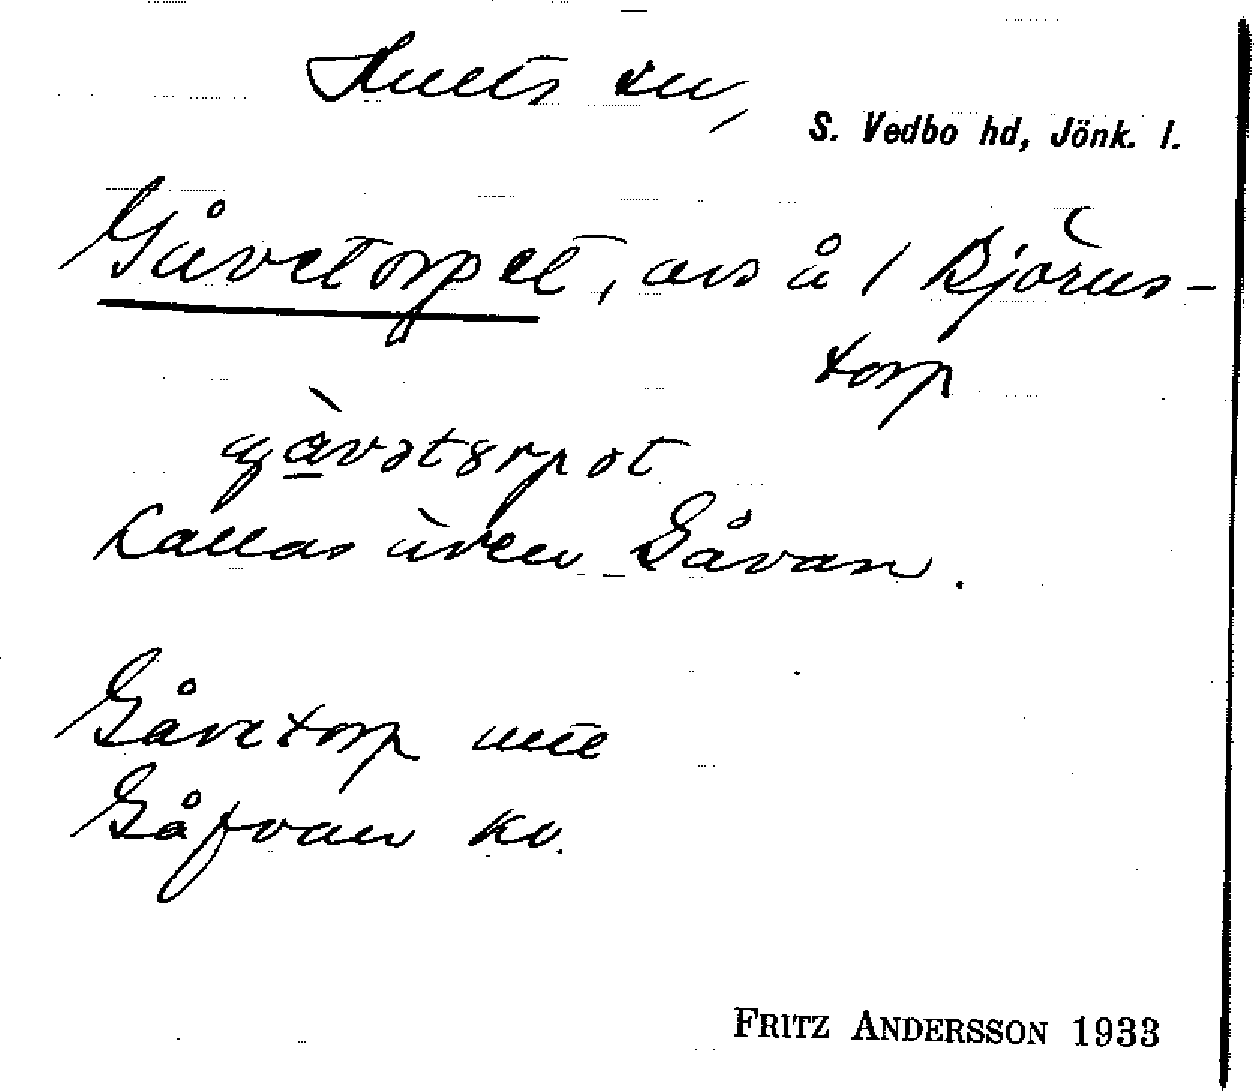 Hults sn,
S. Vedbo hd, Jönk. l.
Gåvetorpet, avs å 1 Björns-
torp
kallas även Gåvan.
Gåvetorp
Gåfvan kv.
FRITZ ANDERSSON 1933